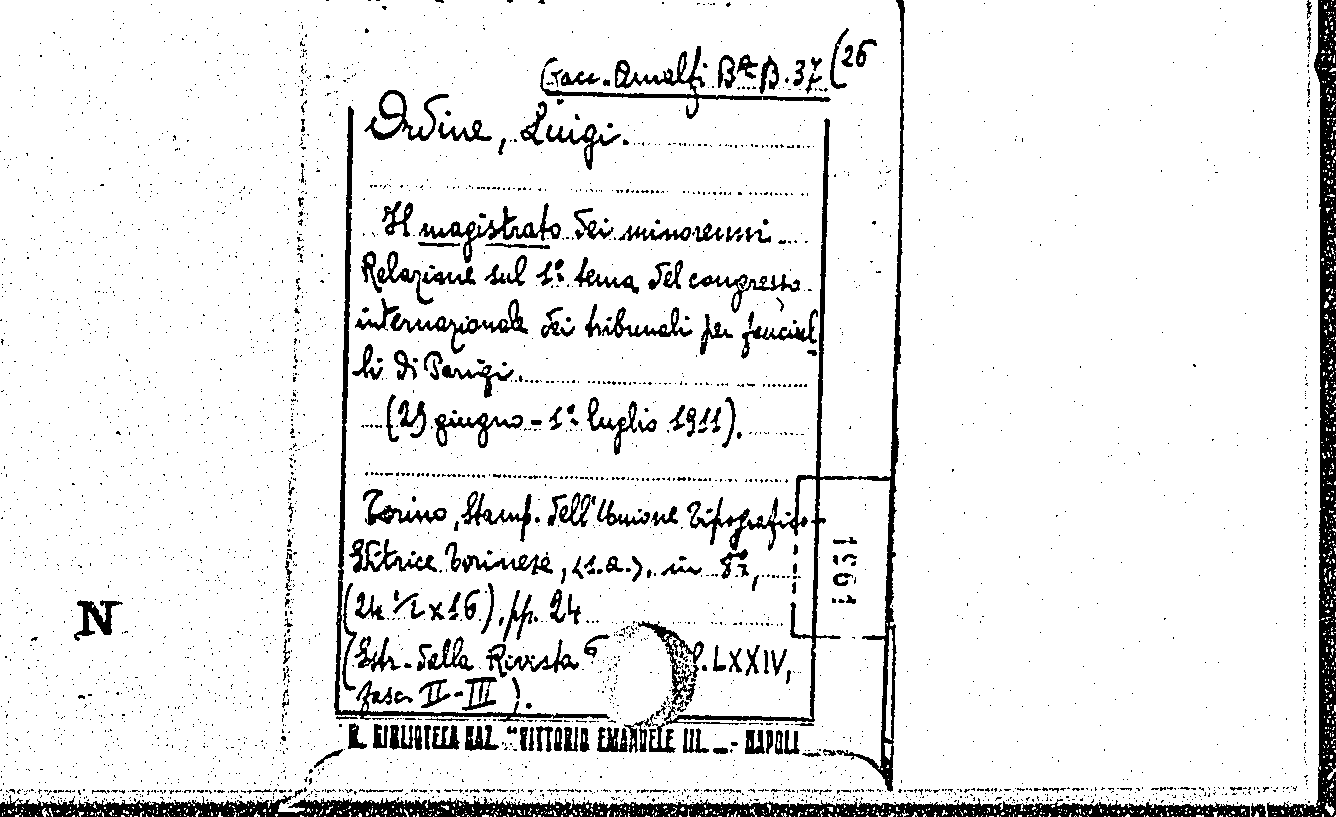 Racc. Amalfi Bta B. 37 (26
Ordine, Luigi.
Il magistrato dei minorenni
Relazione sul 1º tema del congresso
internazionale dei tribunali per fanciul
li di Parigi.
(29 giugno - 1º luglio 1911).
Torino, Stamp. dell'Unione Tipografico-
Editrice Torinese, (s.a.), in 8º,
(24 1/2 x 16), pp. 24
(Estr. della Rivista P. LXXIV,
fasc. II-III).
1931
N
R. BIBLIOTECA NAZ. "VITTORIO EMANUELE III. - NAPOLI